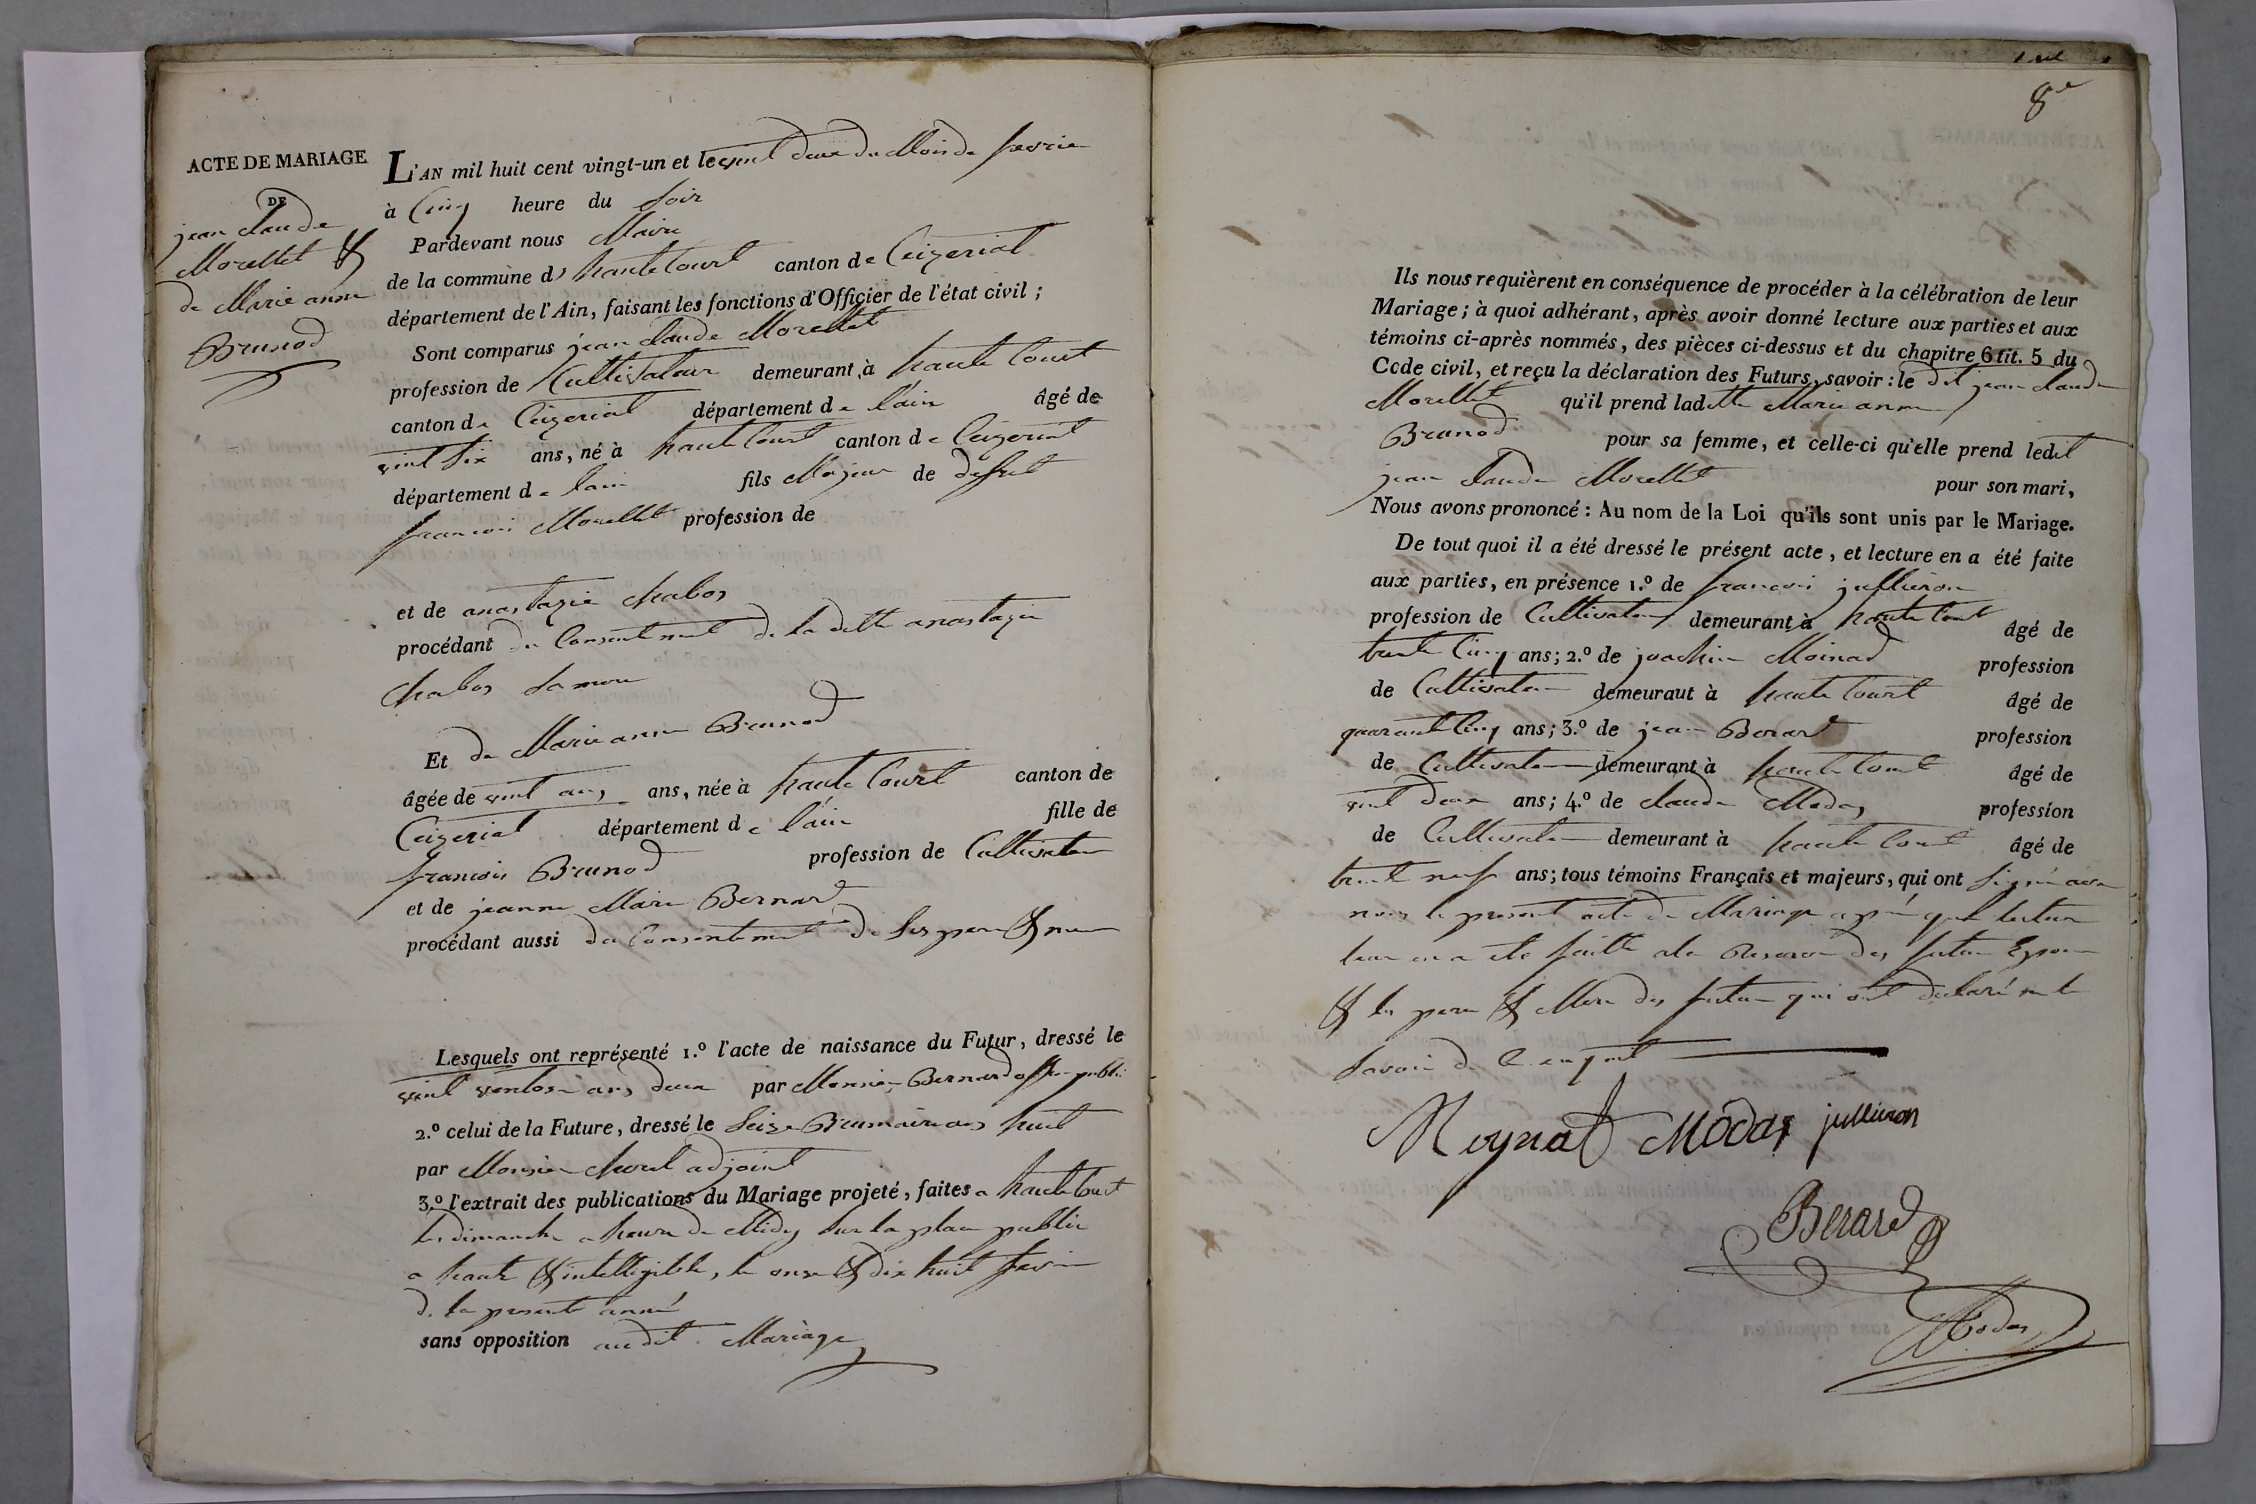 ACTE DE MARIAGE
DE
jean Claude
Morellet &
de Marie anne
Brunod
L'AN mil huit cent vingt-un et le vint deux du Mois de fevrier
à Cinq heure du Soir
Pardevant nous Maire
de la commune d haute Court canton de Ceizeriat
département de l'Ain, faisant les fonctions d'Officier de l'état civil ;
Sont comparus jean Claude Morellet
profession de Cultivateur demeurant à haute Court
canton de Ceizeriat département de l'ain âgé de
vint six ans, né à haute Court canton de Ceizeriat
département de l'ain fils Majeur de defunt
francois Morellet profession de
et de anastazie Chabos
procédant du Consentement de la ditte anastazie
Chabos sa mere
Et de Marie anne Brunod
âgée de vint ans ans, née à haute Court canton de
Ceizeriat département de l'ain fille de
francois Brunod profession de Cultivateur
et de jeanne Marie Bernard
procédant aussi du Consentement de Ses pere & mere
Lesquels ont représenté 1.º l'acte de naissance du Futur, dressé le
vint ventose an deux par Monsieur Bernard publi
2.º celui de la Future, dressé le Seize Brumaire an huit
par Monsieur adjoint
3.º l'extrait des publications du Mariage projeté, faites a haute Court
les dimanche a heure de Midy Sur la place public
a haute & intelligible, le onze & dix huit fevrier
de la presente année
sans opposition audit Mariage
8e
Ils nous requièrent en conséquence de procéder à la célébration de leur
Mariage ; à quoi adhérant, après avoir donné lecture aux parties et aux
témoins ci-après nommés, des pièces ci-dessus et du chapitre 6 tit. 5 du
Code civil, et reçu la déclaration des Futurs, savoir : le dit jean Claude
Morellet qu'il prend ladette Marie anne
Brunod pour sa femme, et celle-ci qu'elle prend ledit
jean Claude Morellet pour son mari,
Nous avons prononcé : Au nom de la Loi qu'ils sont unis par le Mariage.
De tout quoi il a été dressé le présent acte, et lecture en a été faite
aux parties, en présence 1.º de francois jullieron
profession de Cultivateur demeurant à haute Court âgé de
trente Cinq ans ; 2.º de joachim Moinad profession
de Cultivateur demeuraut à haute Court âgé de
quarante Cinq ans ; 3.º de jean Berard profession
de Cultivateur demeurant à haute Court âgé de
vint deux ans ; 4.º de Claude Modas profession
de Cultivateur demeurant à haute Court âgé de
trente neuf ans ; tous témoins Français et majeurs, qui ont Signé avec
nous le present acte de Mariage apré que lecture
leur en a eté faitte a la Reserve des futur Epoux
& les pere & Mere des futur qui ont declaré ne le
Savoir de Ce enquit
Moynat Modas jullieron
Berard
Modas